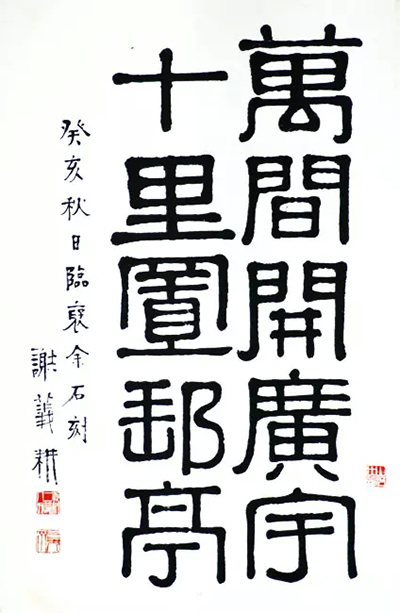 萬間開廣宇
十里置郵亭
癸亥秋日臨褒余石刻
謝義耕